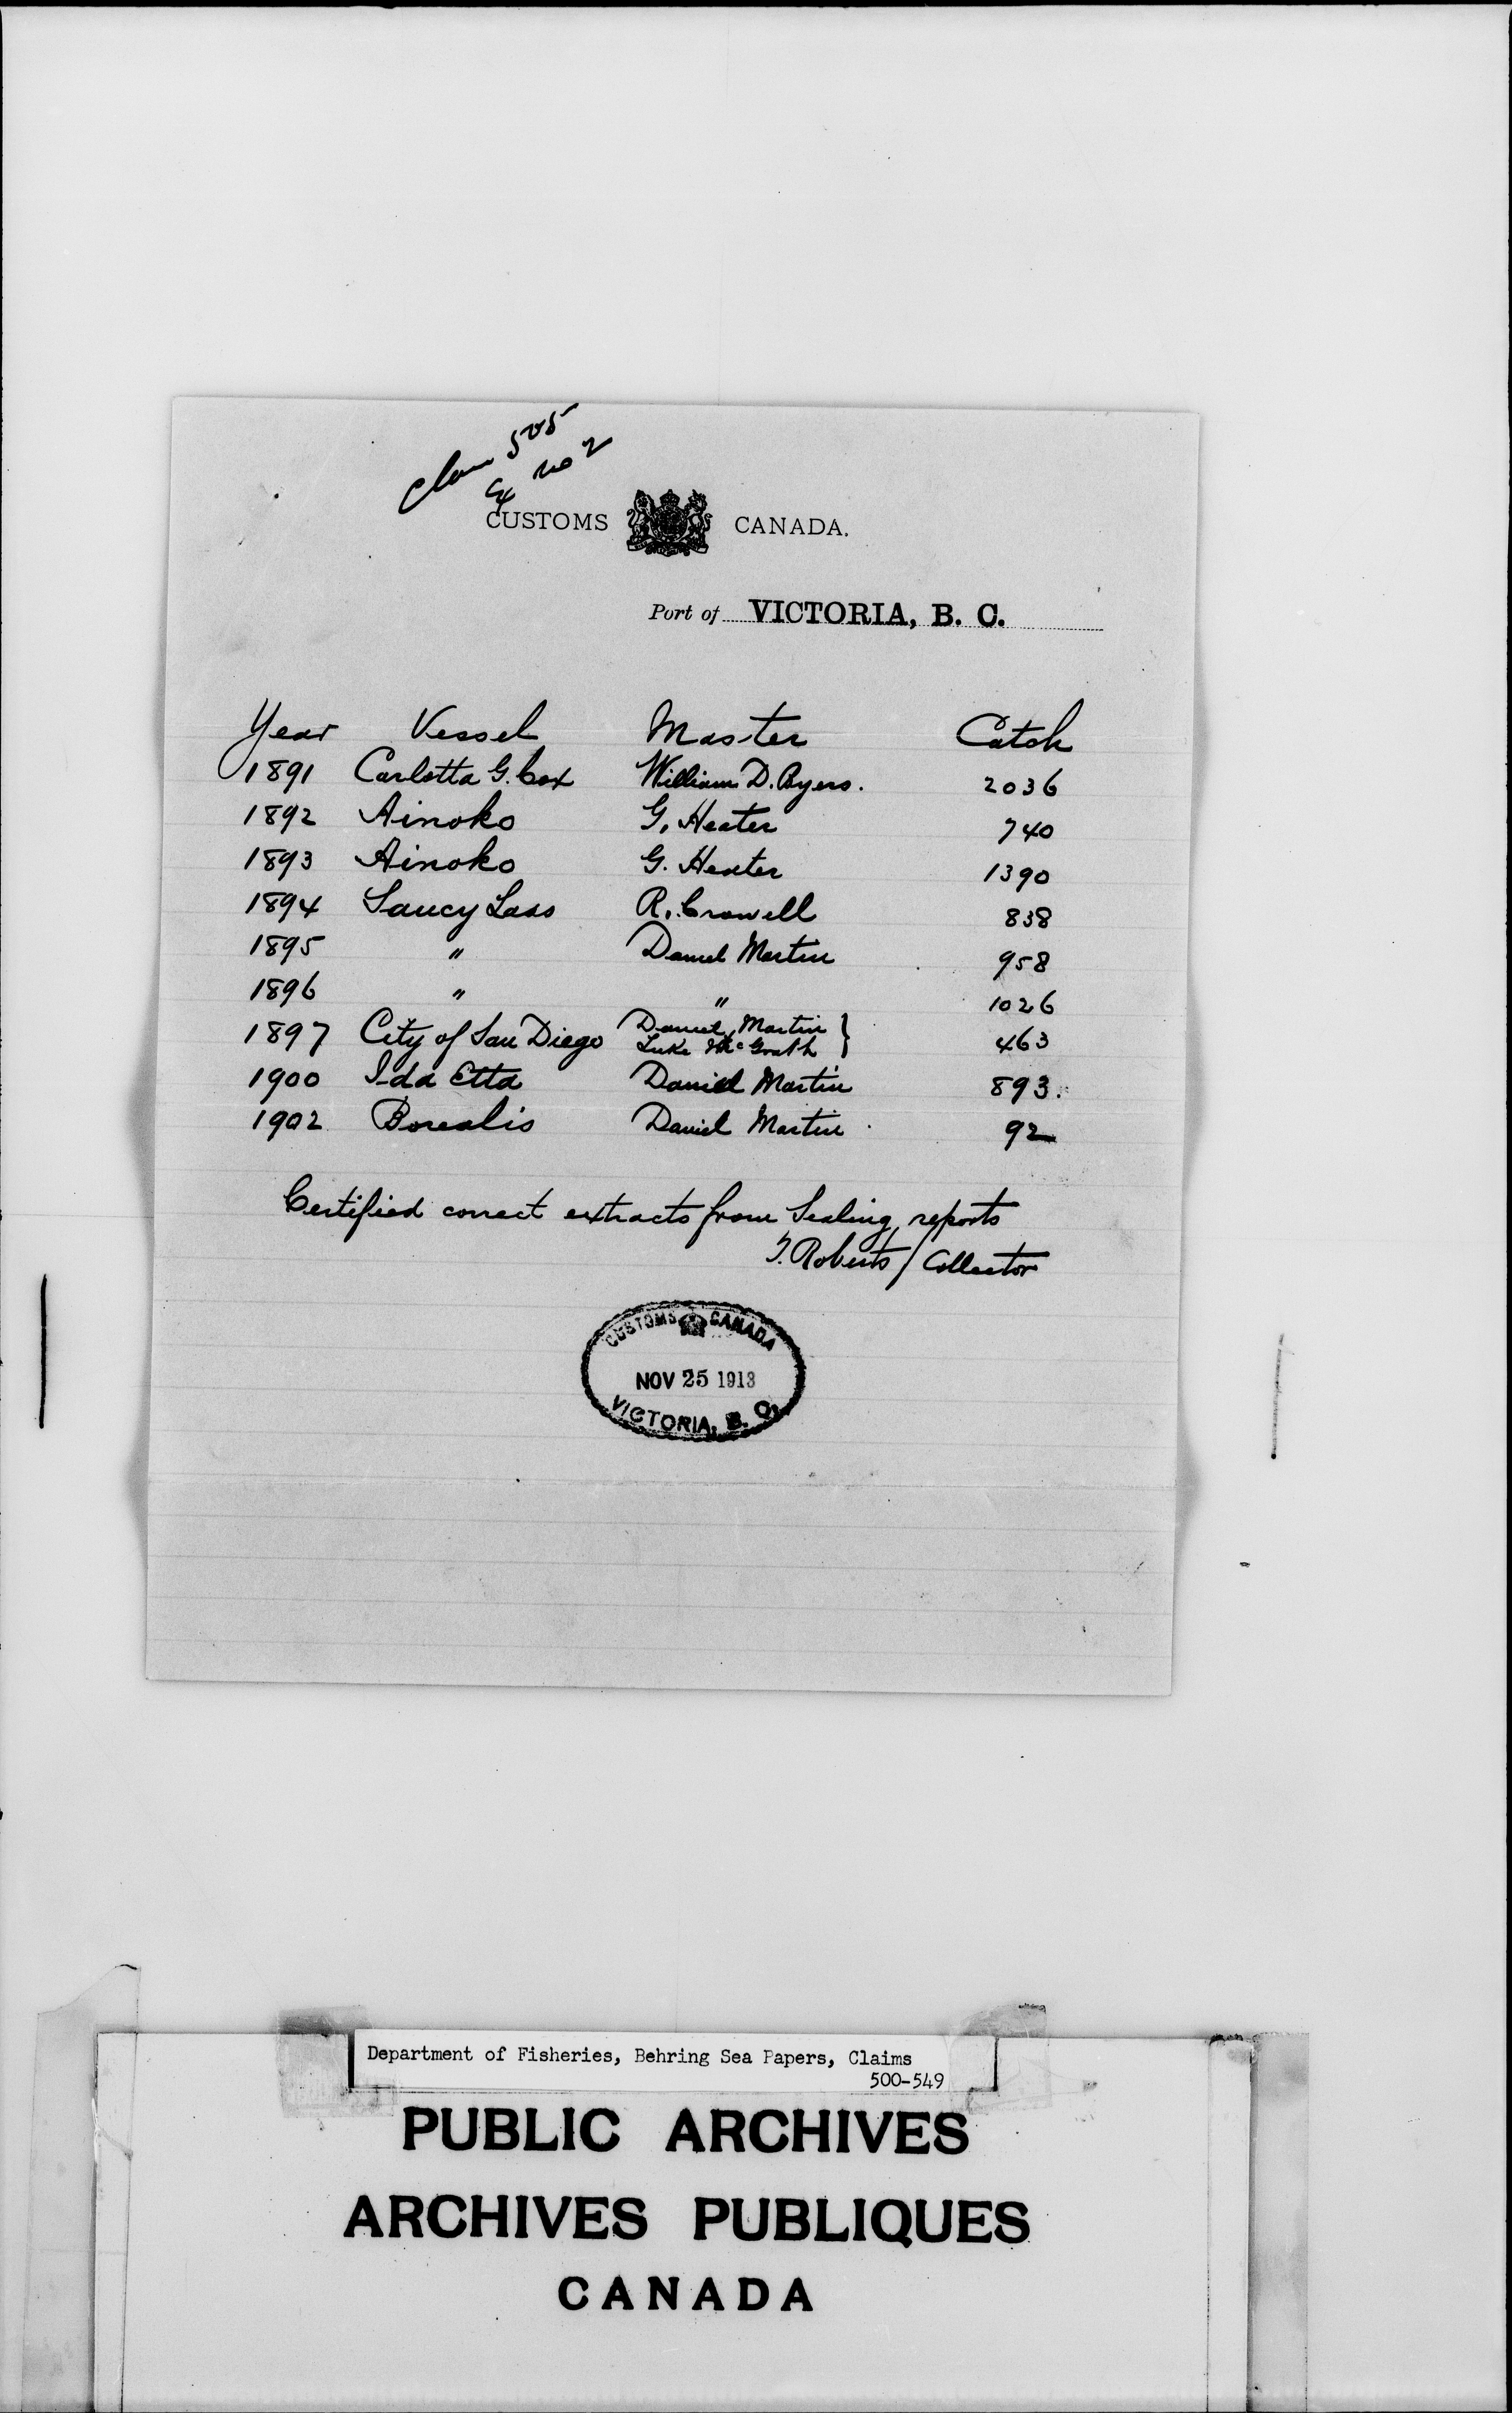 Claim 505
Ex No 2
CUSTOMS CANADA.
Port of VICTORIA, B. C.
Year Vessel Master Catch
1891 Carlotta G. Cox William D. Byers. 2036
1892 Ainoko G. Heater 740
1893 Ainoko G. Heater 1390
1894 Saucy Lass R. Crowell 838
1895 " Daniel Martin 958
1896 " " 1026
1897 City of San Diego Daniel Martin } 463
Luke McGrath
1900 Ida Etta Daniel Martin 893.
1902 Borealis Daniel Martin 92
Certified correct extracts from Sealing reports
J. Roberts / Collector
CUSTOMS CANADA
NOV 25 1913
VICTORIA, B. C.
Department of Fisheries, Behring Sea Papers, Claims
500-549
PUBLIC ARCHIVES
ARCHIVES PUBLIQUES
CANADA